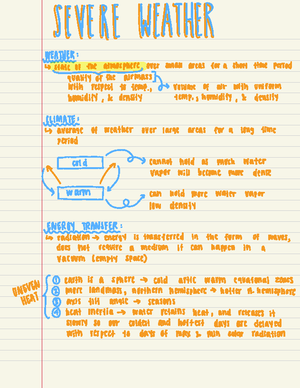 SEVERE WEATHER
WEATHER:
↳ state of the atmosphere over small areas for a short time period
quality of the airmass
with respect to temp., → volume of air with uniform
humidity, & density temp., humidity, & density
CLIMATE:
↳ average of weather over large areas for a long time
period
cold
cannot hold as much water
vapor will become more dense
warm
can hold more water vapor
low density
ENERGY TRANSFER:
↳ radiation → energy is transferred in the form of waves,
does not require a medium it can happen in a
vacuum (empty space)
UNEVEN
HEAT
① earth is a sphere → cold artic warm equatorial zones
② more landmass, northern hemisphere → hotter n. hemisphere
③ axis tilt angle → seasons
④ heat inertia → water retains heat, and releases it
slowly so our coldest and hottest days are delayed
with respect to days of max & min solar radiation